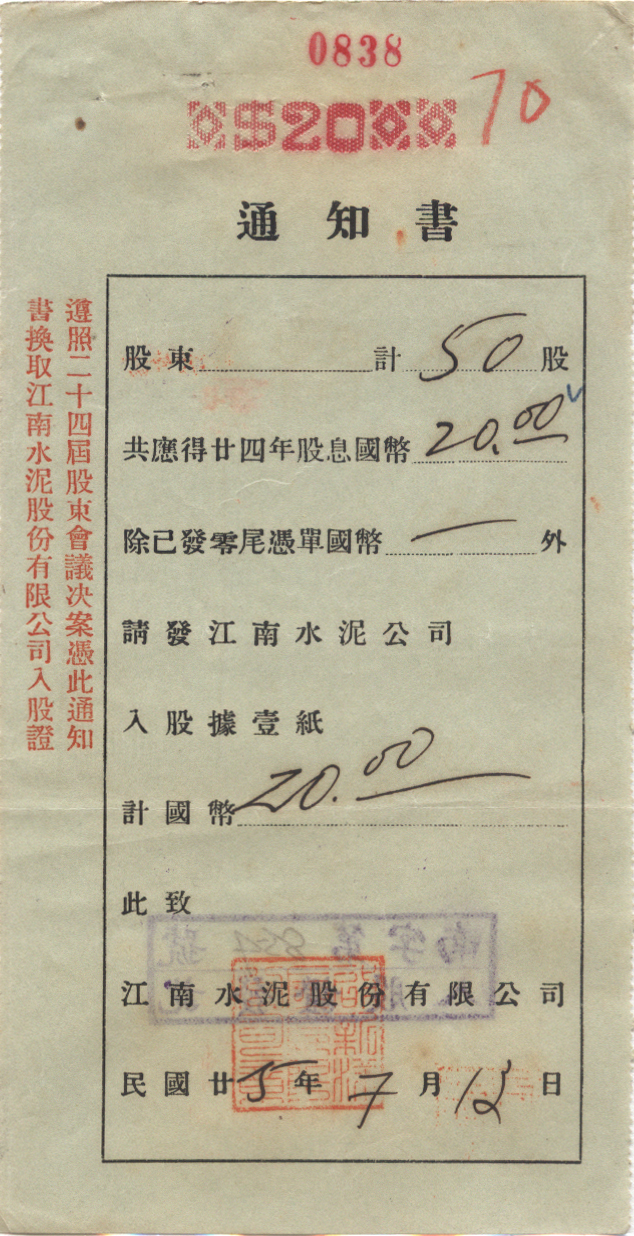 0838
$2000
70
通知書
股東 計 50 股
共應得廿四年股息國幣 20.00
除已發零尾憑單國幣 一 外
請發江南水泥公司
入股據壹紙
計國幣 20.00
此致
江南水泥股份有限公司
民國廿5年7月15日
遵照二十四屆股東會議決案憑此通知
書換取江南水泥股份有限公司入股證